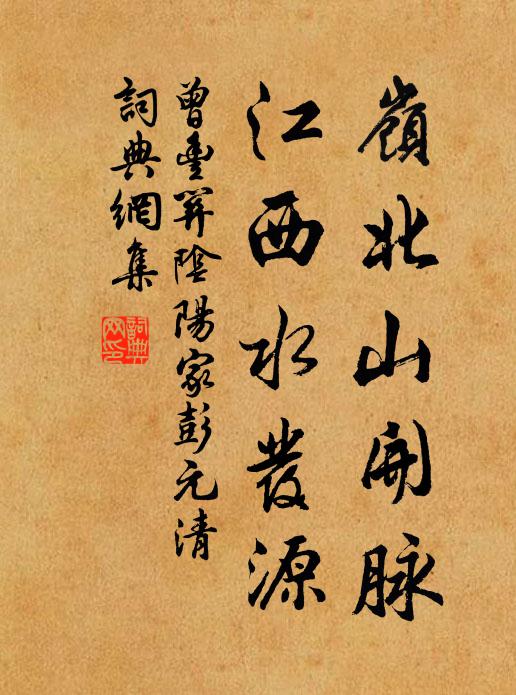 嶺北山開脉
江西水發源
曾豐羿陰陽家彭元清
詞典網集
詞典網印